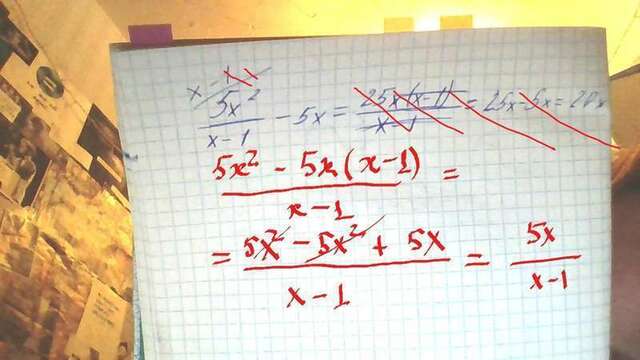 5x² / (x-1) - 5x = 25x(x-1) / (x-1) = 25x-5x = 20x
(5x² - 5x(x-1)) / (x-1) =
= (5x² - 5x² + 5x) / (x-1) = 5x / (x-1)